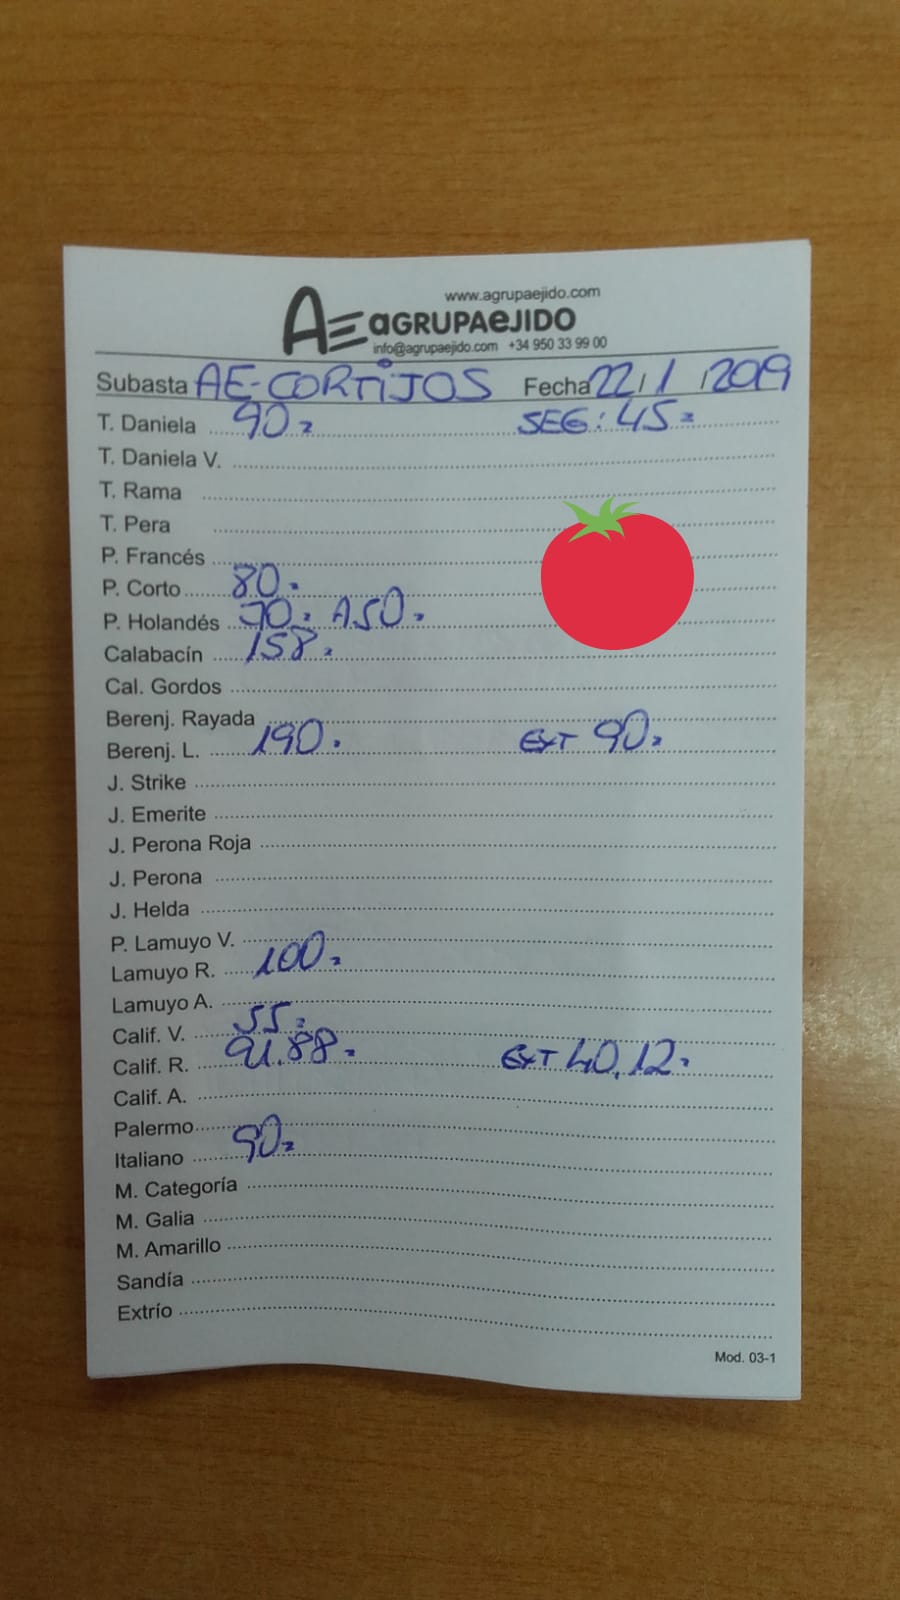 www.agrupaejido.com
AE aGRUPAeJIDO
info@agrupaejido.com +34 950 33 99 00
Subasta AE-CORTiJOS Fecha 22/1/2019
T. Daniela 90 SEG: 45
T. Daniela V.
T. Rama
T. Pera
P. Francés
P. Corto 80
P. Holandés 70 A50
Calabacín 158
Cal. Gordos
Berenj. Rayada
Berenj. L. 190 EXT 90
J. Strike
J. Emerite
J. Perona Roja
J. Perona
J. Helda
P. Lamuyo V.
Lamuyo R. 100
Lamuyo A.
Calif. V. 55
Calif. R. 91.88 EXT 40,12
Calif. A.
Palermo
Italiano 90
M. Categoría
M. Galia
M. Amarillo
Sandía
Extrío
Mod. 03-1